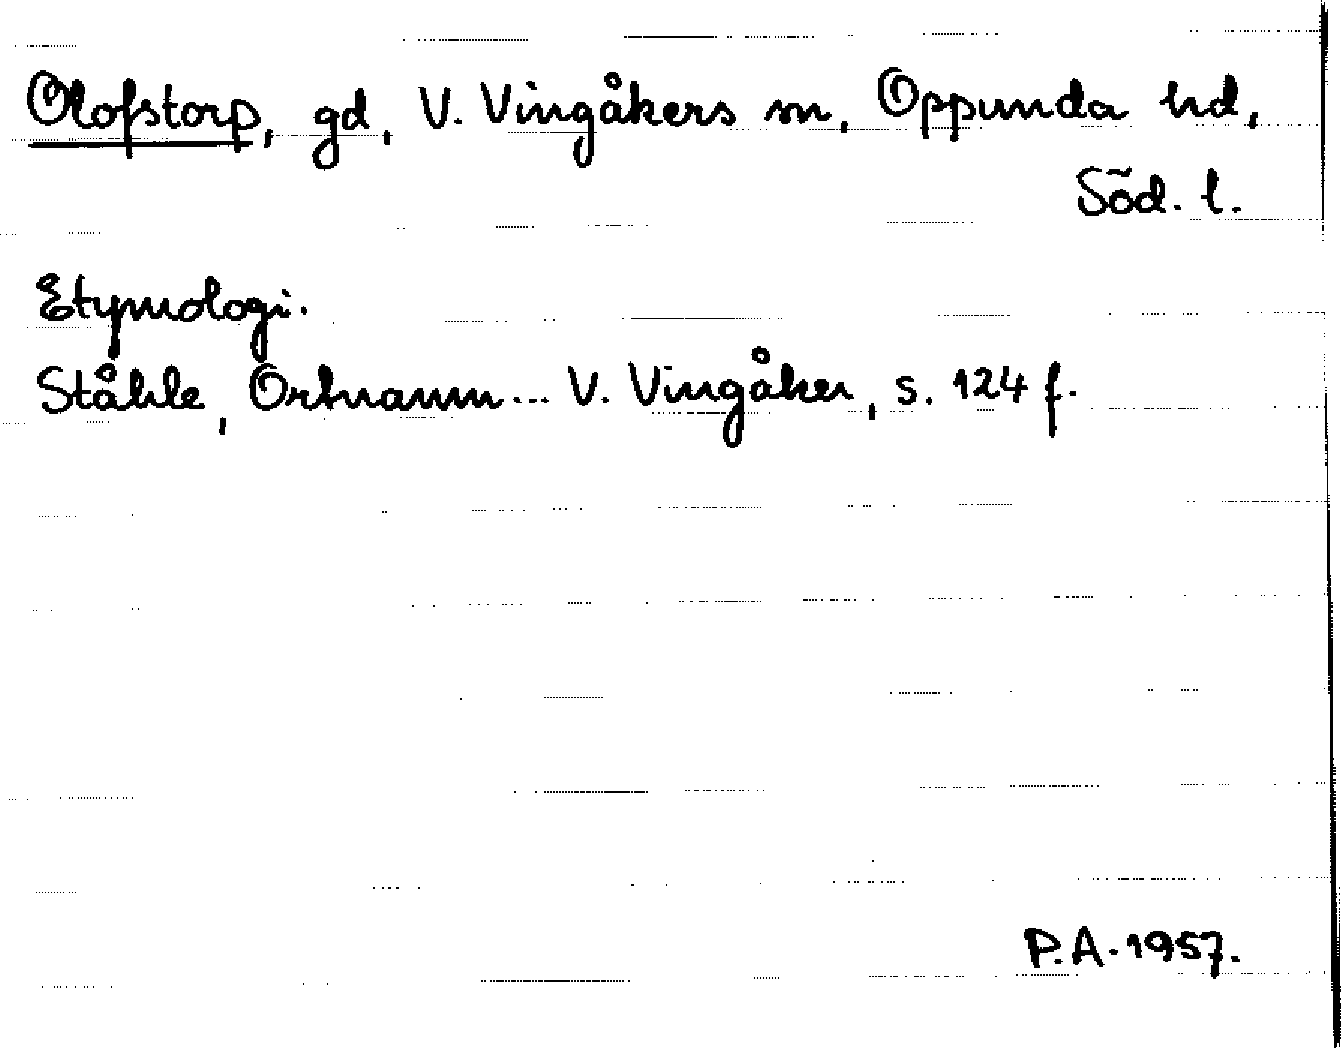 Olofstorp, gd, V. Vingåkers sn, Oppunda hd,
Söd. l.
Etymologi.
Ståhle, Ortnamn... V. Vingåker, s. 124 f.
P.A. 1957.